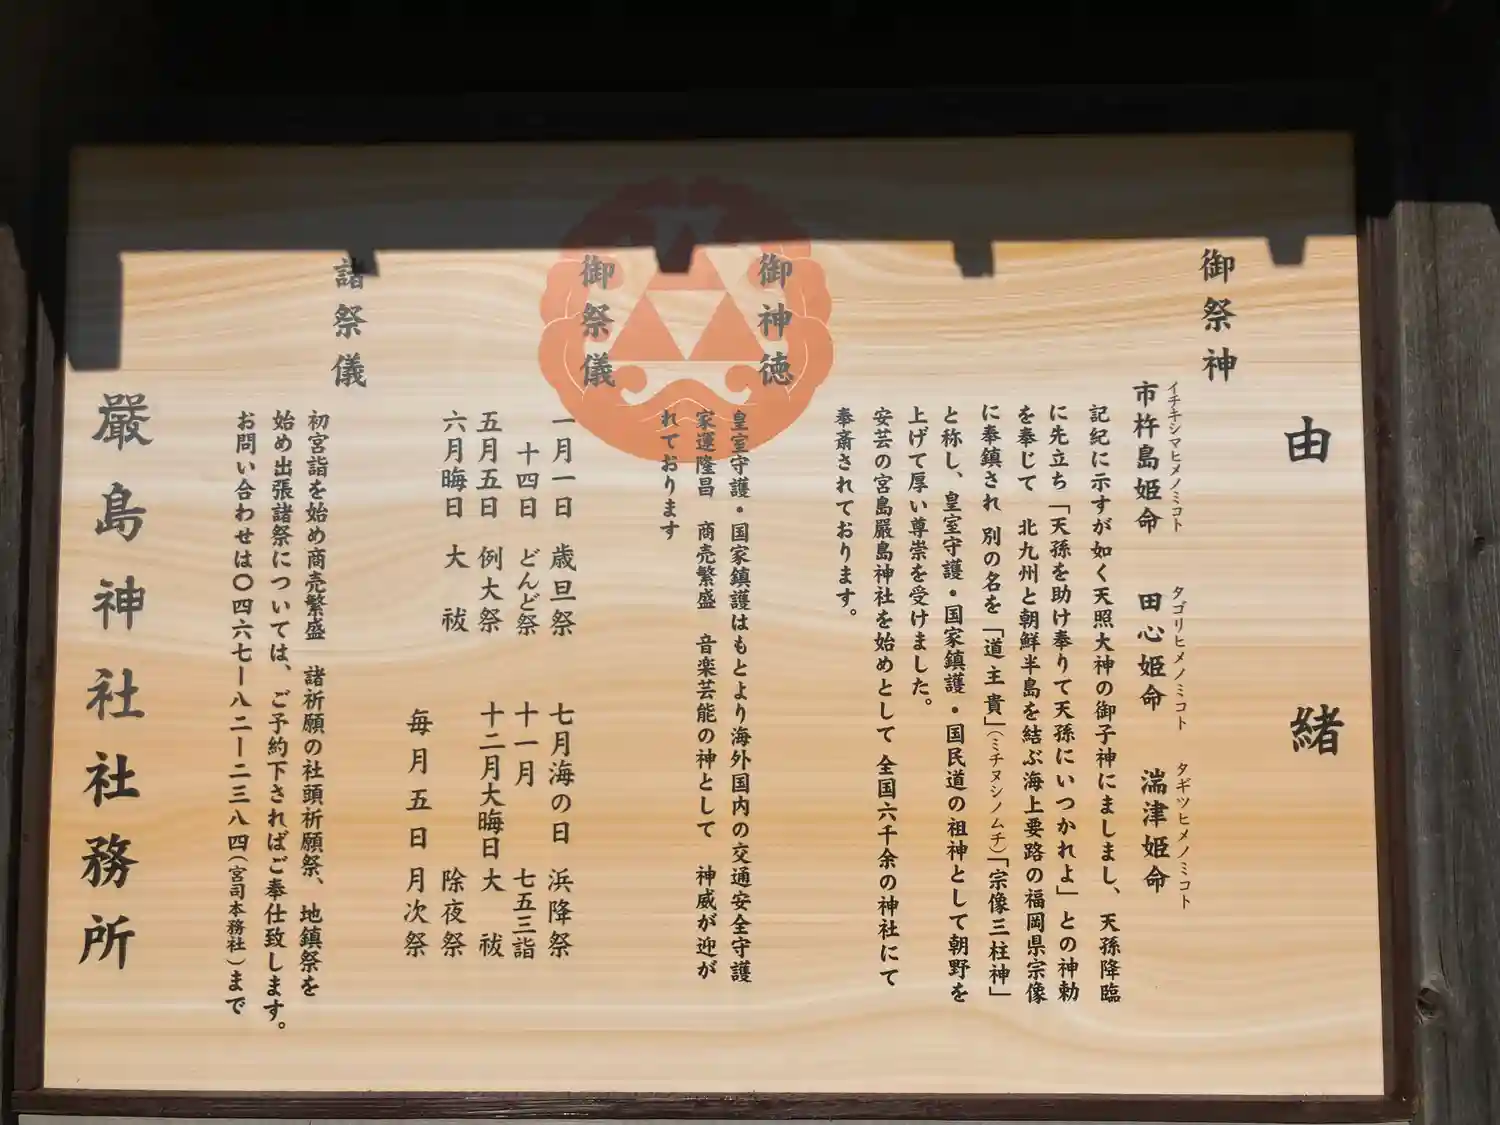 由緒
御祭神
イチキシマヒメノミコト タゴリヒメノミコト タギツヒメノミコト
市杵島姫命 田心姫命 湍津姫命
記紀に示すが如く天照大神の御子神にましまし、天孫降臨
に先立ち「天孫を助け奉りて天孫にいつかれよ」との神勅
を奉じて 北九州と朝鮮半島を結ぶ海上要路の福岡県宗像
に奉鎮され 別の名を「道主貴」(ミチヌシノムチ)「宗像三柱神」
と称し、皇室守護・国家鎮護・国民道の祖神として朝野を
上げて厚い尊崇を受けました。
安芸の宮島嚴島神社を始めとして 全国六千余の神社にて
奉斎されております。
御神徳
皇室守護・国家鎮護はもとより海外国内の交通安全守護
家運隆昌 商売繁盛 音楽芸能の神として 神威が迎が
れております
御祭儀
一月一日 歳旦祭 七月海の日 浜降祭
十四日 どんど祭 十一月 七五三詣
五月五日 例大祭 十二月大晦日 大祓
六月晦日 大祓 除夜祭
毎月五日 月次祭
諸祭儀
初宮詣を始め商売繁盛 諸祈願の社頭祈願祭、地鎮祭を
始め出張諸祭については、ご予約下さればご奉仕致します。
お問い合わせは〇四六七ー八二ー二三八四(宮司本務社)まで
嚴島神社社務所